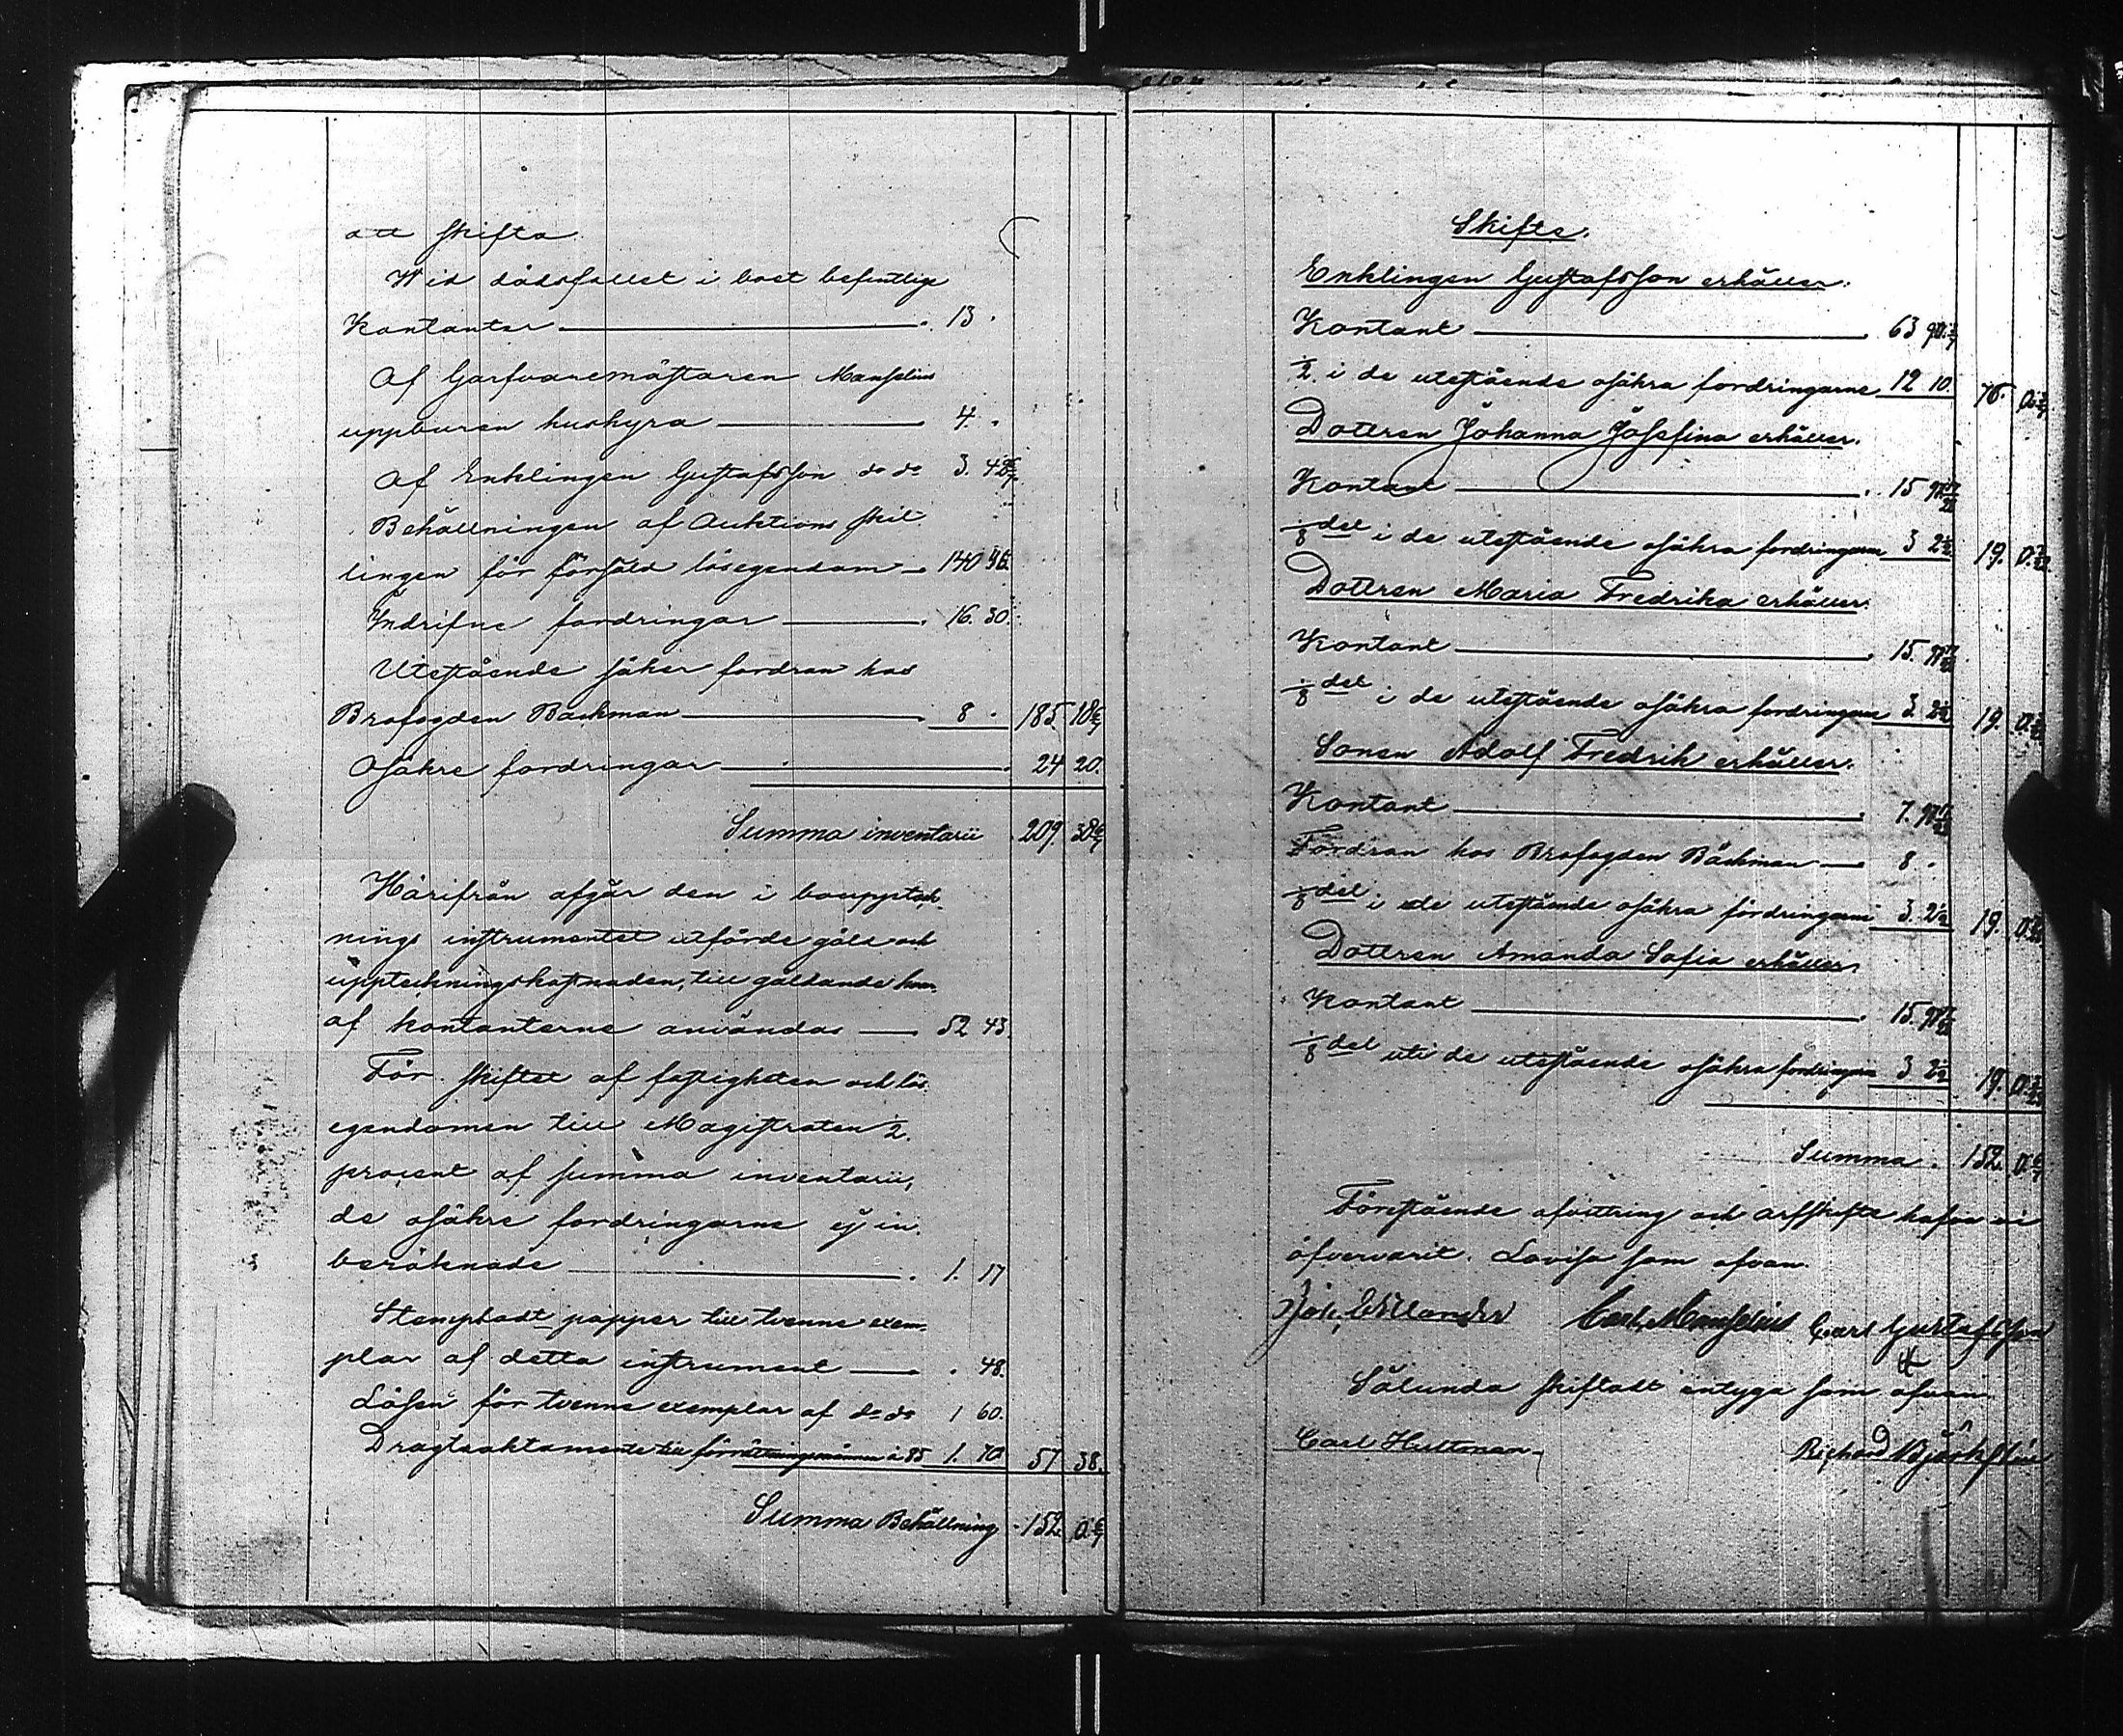 att skifta
Wid dödsfallet i boet befintlige
Kontanter 13.
Af Garfvaremästaren Manselius
uppburen hushyra 4.
Af Enklingen Gustafsson do do 3. 42 6/7
Behållningen af Auktions skil-
lingen för försåld lösegendom 140 46.
Indrifne fordringar 16. 30.
Utestående säker fordran hos
Brofogden Backman 8. 185. 18 6/7
Osäkre fordringar 24 20.
Summa inventarii 209. 38 6/7
Härifrån afgår den i boupptek-
nings instrumentet utförde gäld och
uppteckningskostnaden, till gäldande hvar-
af kontanterne användas 52 43.
För skiftet af fastigheten och lös
egendomen till Magistraten 1/2
procent af summa inventarii,
de osäkre fordringarne ej in-
beräknade 1. 17
Stempladt papper till tvenne exem-
plar af detta instrument . 48.
Lösen för tvenne exemplar af do do 1 60.
Dragtaktamente till förrättningsmännen à 85 1. 70 57 38.
Summa Behållning 152. 0 6/7
Skifte.
Enklingen Gustafsson erhåller.
Kontant 63 90 3/7
1/2 i de utestående osäkra fordringarne 12 10. 76. 0 3/7
Dottren Johanna Josefina erhåller.
Kontant 15 97
1/8 del i de utestående osäkra fordringarne 3 2 1/2 19. 0
Dottren Maria Fredrika erhåller.
Kontant 15. 97
1/8 del i de utestående osäkra fordringarne 3. 2 1/2 19. 0
Sonen Adolf Fredrik erhåller.
Kontant 7. 97
Fordran hos Brofogden Bäckman 8.
1/8 del i de utestående osäkra fordringarne 3. 2 1/2 19. 0
Dottren Amanda Sofia erhåller.
Kontant 15. 97
1/8 del uti de utestående osäkra fordringarne 3 2 1/2 19. 0
Summa. 152. 0 6/7
Förestående afvittring och arfskifte hafva vi
öfvervarit. Lovisa som ofvan.
Joh. Carl Manselius Carl Gustafsson
Sålunda skiftadt intyga som ofvan
Carl Hultman Richard Björksten